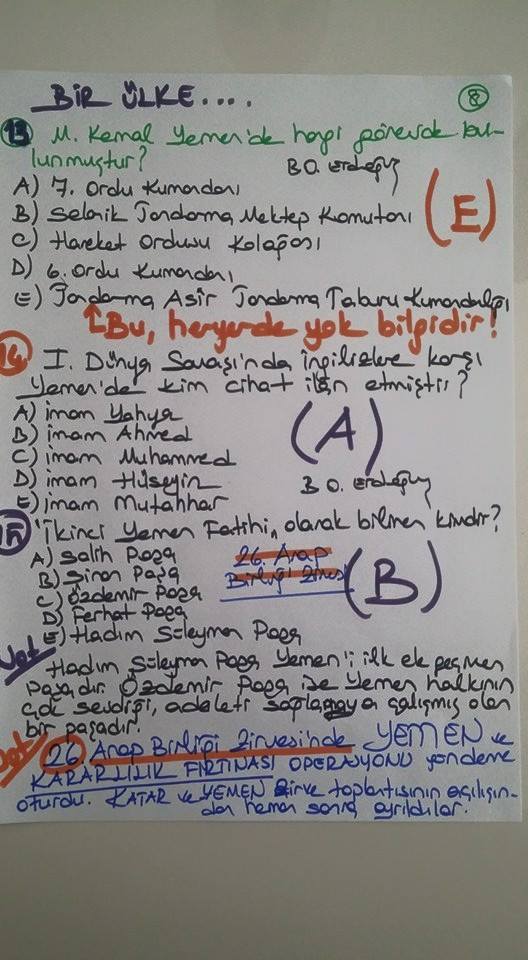 BİR ÜLKE....
8
13 M. Kemal Yemen'de hangi görevde bu-
lunmuştur?
B O. Erdoğuş
A) 7. Ordu Kumandanı
B) Selanik Jandarma Mektep Komutanı
(E)
C) Hareket Ordusu Kolağası
D) 6. Ordu Kumandanı
E) Jandarma Asir Jandarma Taburu Kumandanlığı
Bu, heryerde yok bilgidir!
14 I. Dünya Savaşı'nda ingilizlere karşı
Yemen'de kim cihat ilan etmiştir?
A) imam Yahya
(A)
B) imam Ahmed
C) imam Muhammed
D) imam Hüseyin
B O. Erdoğuş
E) imam Mutahhar
15 "İkinci Yemen Fatihi" olarak bilinen kimdir?
A) Salih Paşa
26. Arap
B) Sinan Paşa
Birliği Zirvesi
(B)
C) Özdemir Paşa
D) Ferhat Paşa
E) Hadım Süleyman Paşa
Not Hadım Süleyman Paşa Yemen'i ilk ele geçiren
paşadır. Özdemir Paşa ise Yemen halkının
çok sevdiği, adaleti sağlamaya çalışmış olan
bir paşadır.
Not 26. Arap Birliği Zirvesi'nde YEMEN ve
KARARLILIK FIRTINASI OPERASYONU gündeme
oturdu. KATAR ve YEMEN zirve toplantısının açılışın-
dan hemen sonra ayrıldılar.